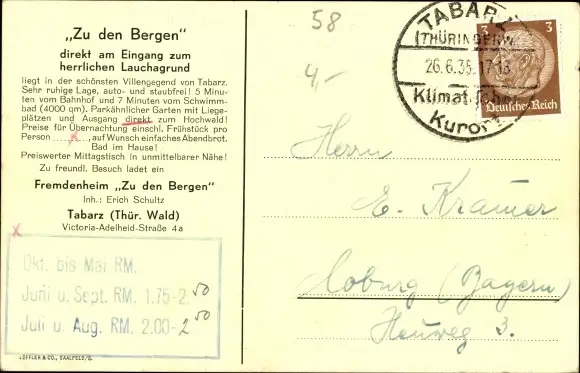 „Zu den Bergen"
direkt am Eingang zum
herrlichen Lauchagrund
liegt in der schönsten Villengegend von Tabarz.
Sehr ruhige Lage, auto- und staubfrei! 5 Minu-
ten vom Bahnhof und 7 Minuten vom Schwimm-
bad (4000 qm). Parkähnlicher Garten mit Liege-
plätzen und Ausgang direkt zum Hochwald!
Preise für Übernachtung einschl. Frühstück pro
Person ...x..., auf Wunsch einfaches Abendbrot.
Bad im Hause!
Preiswerter Mittagstisch in unmittelbarer Nähe!
Zu freundl. Besuch ladet ein
Fremdenheim „Zu den Bergen"
Inh.: Erich Schultz
Tabarz (Thür. Wald)
Victoria-Adelheid-Straße 4a
x
Okt. bis Mai RM.
Juni u. Sept. RM. 1.75-2.50
Juli u. Aug. RM. 2.00-2.50
LÖFFLER & CO., SAALFELD/S.
58
4,-
TABARZ
(THÜRINGERW.
26.6.35.17-18
Klimat.
Kurort
3
3
Deutsches Reich
Herrn
E. Kramer
Coburg (Bayern)
Heuweg 3.